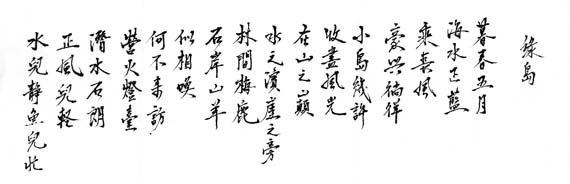 綠島
暮春五月
海水正藍
乘長風
豪興徜徉
小島幾許
收盡風光
在山之巔
水之濱崖之旁
林間梅鹿
石岸山羊
似相喚
何不來訪
營火燈臺
潛水石朗
正風兒輕
水兒靜魚兒忙